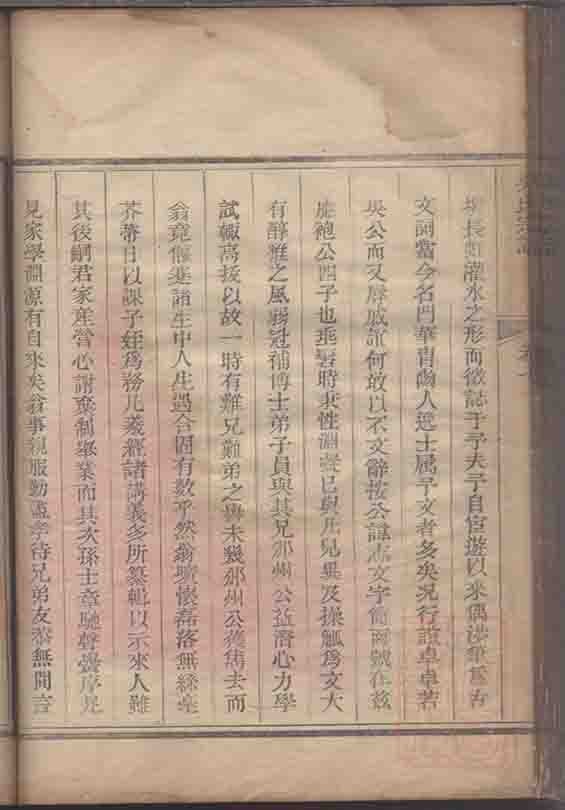 長虹灌水之形而徵誌于予夫予自宦遊以來偶涉筆為古
文詞當今名門華胄幽人逸士属予文者多矣况行誼卓卓若
吳公而又辱戚誼何敢以不文辭按公諱志文字簡齋號在兹
施袍公四子也垂髫時秉性淵聲已與凡兒異及操觚為文大
有醇雅之風弱冠補博士弟子員與其兄邠州公益潛心力學
試輒高拔以故一時有難兄難弟之譽未幾邠州公獲雋去而
翁竟偃蹇諸生中人生遇合固有數乎然翁曠懷磊落無絲毫
芥蒂日以課子姪為務凡羲經諸講義多所纂輯以示來人雖
其後嗣君家產營心謝棄制舉業而其次孫士章馳聲黌序足
見家學淵源有自來矣翁事親服勤盡孝待兄弟友恭無間言